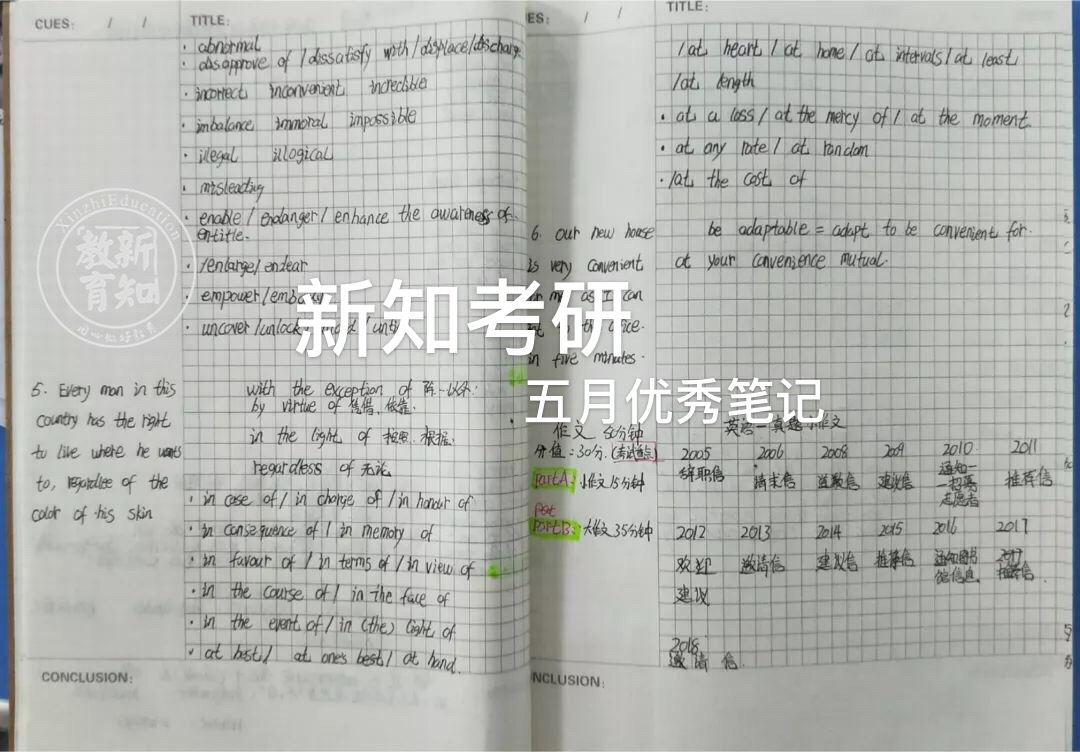 CUES: / /
TITLE:
· abnormal
· disapprove of / dissatisfy with / displace / discharge
· incorrect inconvenient incredible
· imbalance immoral impossible
· illegal illogical
· misleading
· enable / endanger / enhance the awareness of
entitle.
· /enlarge/ endear
· empower / embody
· uncover / unlock /
5. Every man in this
country has the right
to live where he wants
to, regardlee of the
color of his skin
with the exception of 除…以外.
by virtue of 凭借、依靠.
in the light of 按照、根据.
regardless of 无论
· in case of / in charge of / in honour of
· in consequence of / in memory of
· in favour of / in terms of / in view of
· in the course of / in the face of
· in the event of / in (the) light of
· at best / at one's best / at hand.
CONCLUSION:
ES: / /
TITLE:
/at heart / at home / at intervals / at least
/at length
· at a loss / at the mercy of / at the moment.
· at any rate / at random
· /at the cost of
6. Our new house
is very convenient
me as I can
the office.
in five minutes.
be adaptable = adapt to be convenient for.
at your convenience mutual.
作文 50分钟
分值:30分.(考试重点)
PartA: 小作文15分钟
Part
PartB: 大作文35分钟
英语一真题小作文
2005 2006 2008 2009 2010 2011
辞职信 请求信 道歉信 建议信 通知一 推荐信
招募
志愿者
2012 2013 2014 2015 2016 2017
欢迎 邀请信 建议信 推荐信 通知图书 2017
建议 馆信息 推荐信
2018
邀请信
NCLUSION:
XinzhiEducation
教新
育知
新知考研
五月优秀笔记